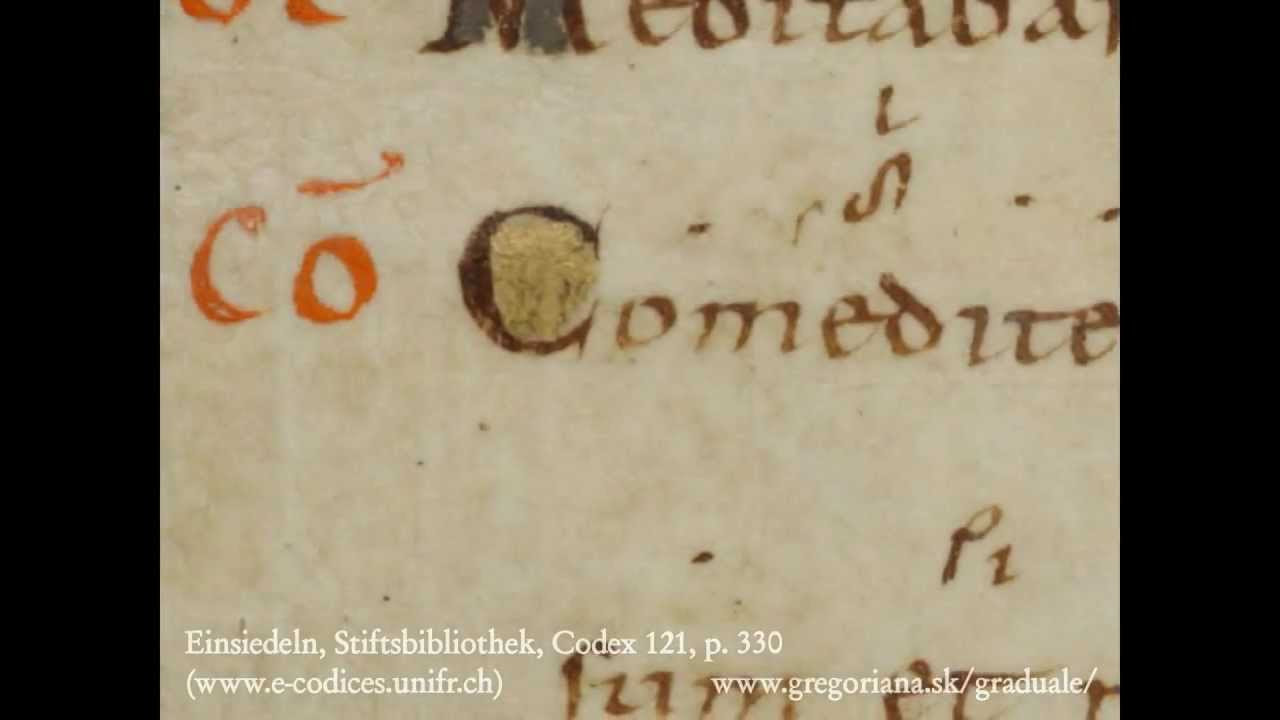 Of Meditaba
l
Cō Comedite
Einsiedeln, Stiftsbibliothek, Codex 121, p. 330
sum et
(www.e-codices.unifr.ch) www.gregoriana.sk/graduale/